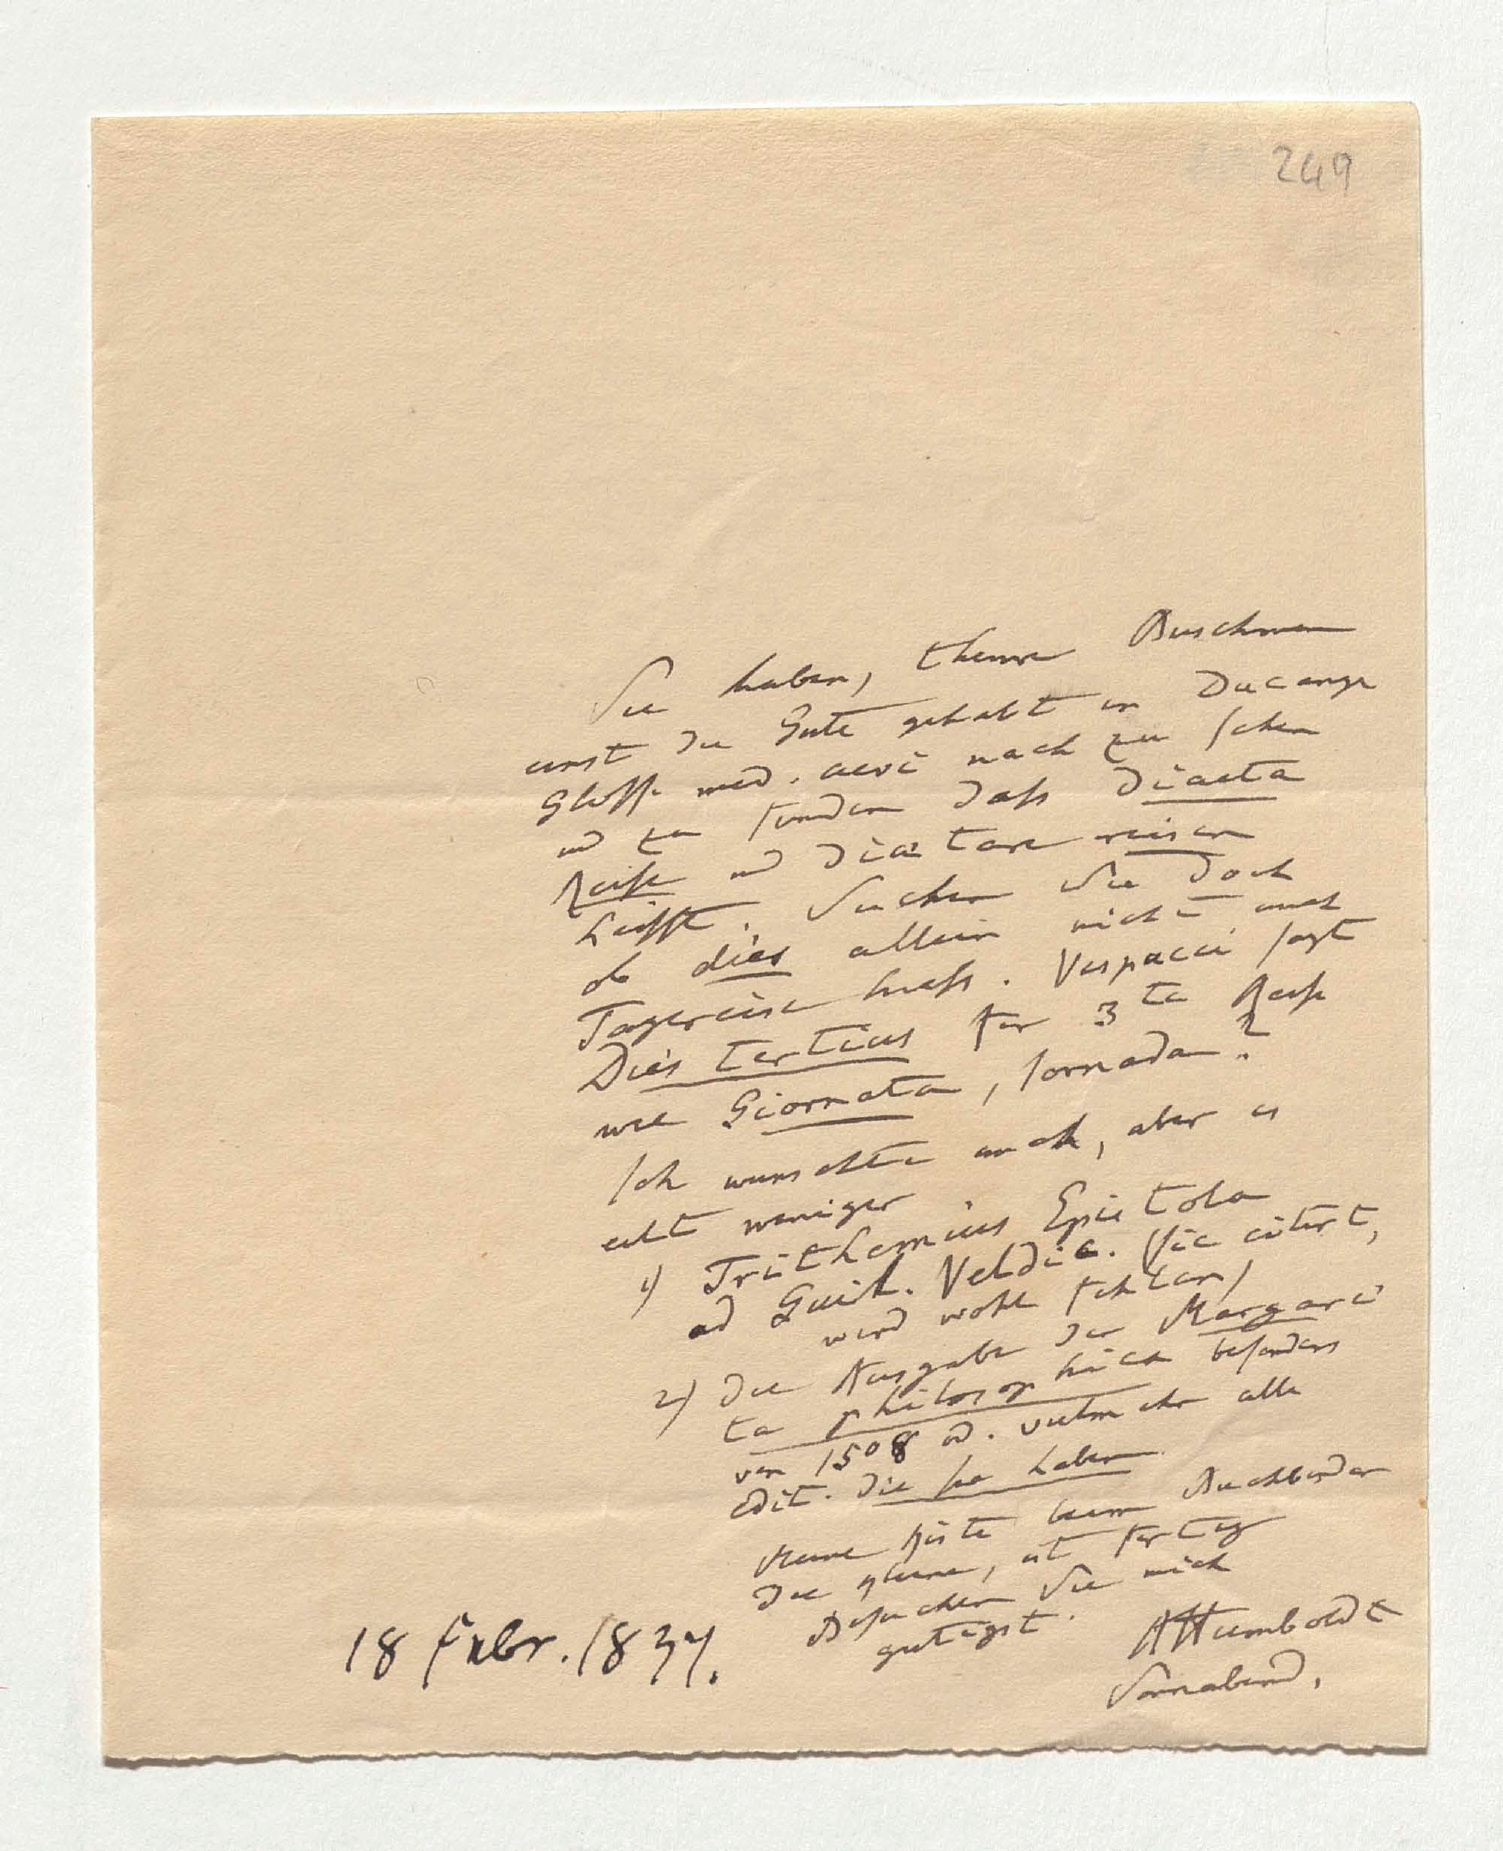 249
Sie haben, theurer Buschmann
einst die Güte gehabt in Ducange
Gloss. med. aevi nach zu sehen
und zu finden dass diaeta
Reise und diaetare reisen
heisst. Suchen Sie doch
ob dies allein nicht auch
Tagereise heisst. Vespucci sagt
Dies tertius für 3te Reise
wie Giornata, Jornada?
Ich wünschte auch, aber es
eilt weniger
1) Trithemius Epistola
ad Guil. Veldic. (sic citirt,
wird wohl fehlen)
2) die Ausgabe der Margari
ta philosophica besonders
von 1508 od. vielmehr alle
Edit. die sie haben
Meine Kiste beim Buchbinder
die kleine, ist fertig
Besuchen Sie mich
gütigst.
AHumboldt
Sonnabend,
18 Febr. 1837.